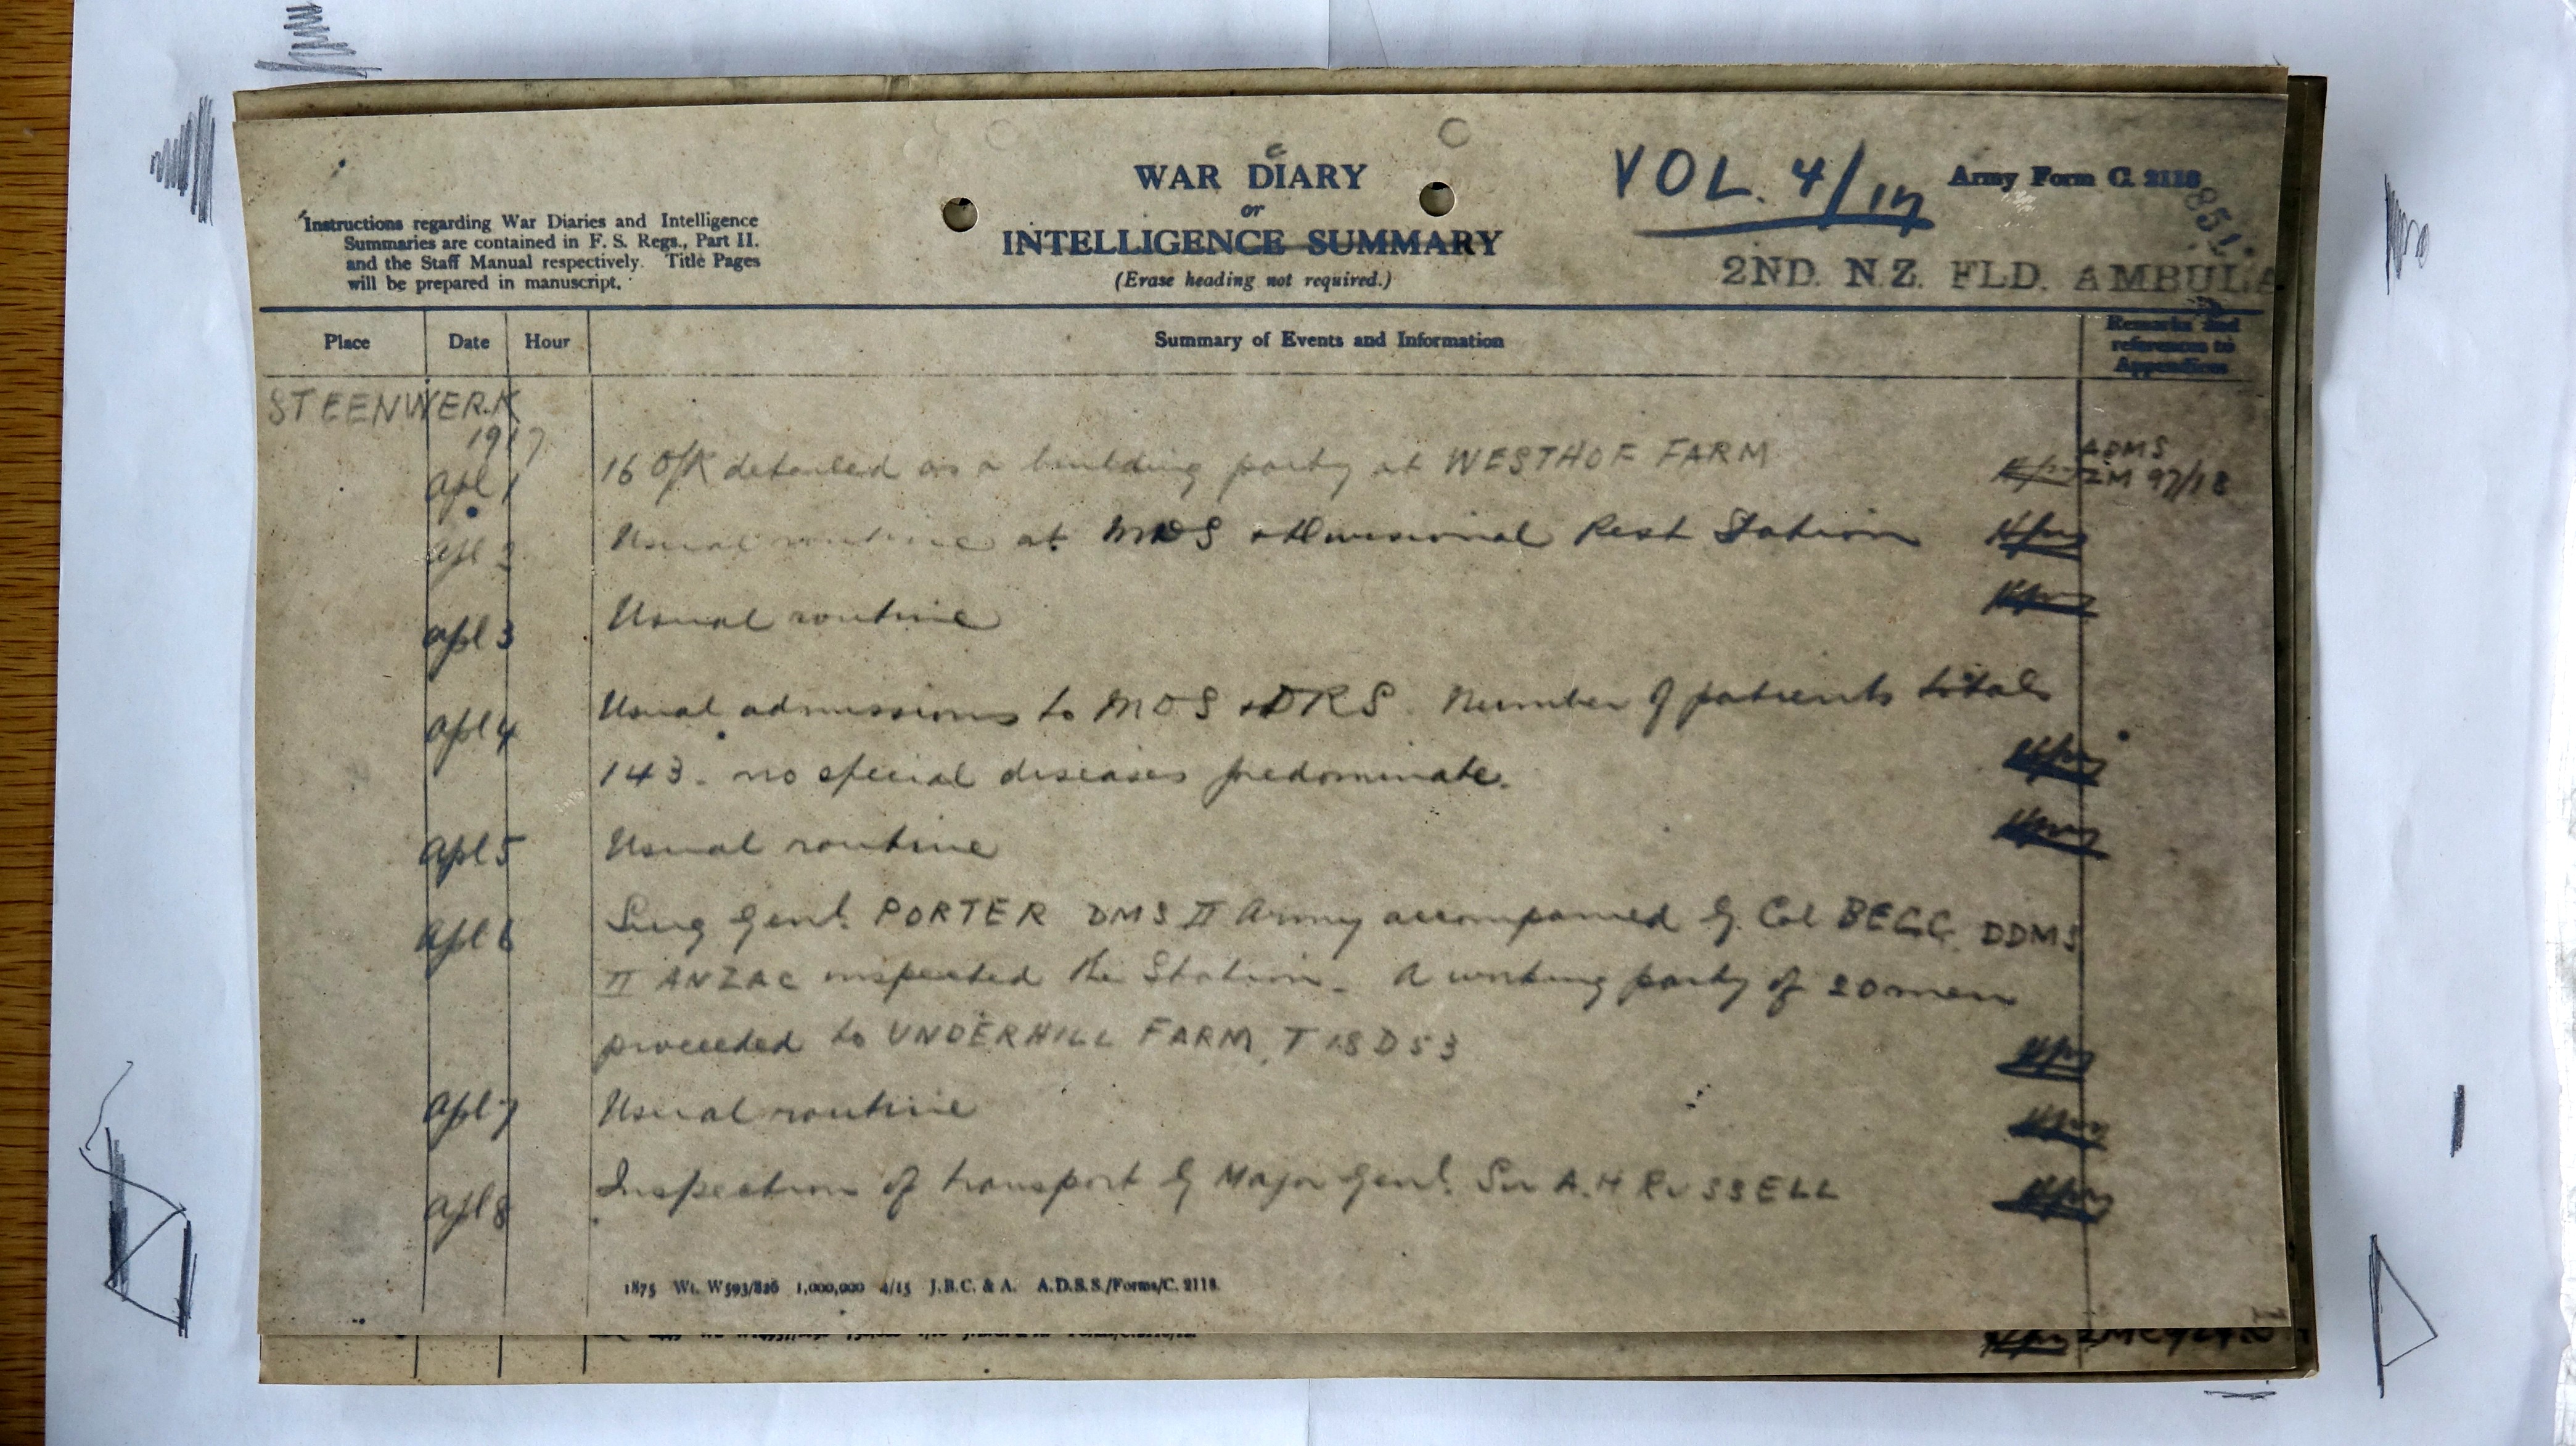 Instructions regarding War Diaries and Intelligence
Summaries are contained in F. S. Regs., Part II.
and the Staff Manual respectively. Title Pages
will be prepared in manuscript.
WAR DIARY
or
INTELLIGENCE SUMMARY
(Erase heading not required.)
VOL. 4/17
Army Form C. 2118
2ND. N.Z. FLD. AMBULA
Place
Date
Hour
Summary of Events and Information
Remarks and
references to
Appendices
STEENWERK
1917
Apl 1 16 O/R detailed as a building party at WESTHOF FARM ADMS
ZM 97/18
Apl 2 Usual routine at MDS + Divisional Rest Station
Apl 3 Usual routine
Apl 4 Usual admissions to MDS + DRS. Number of patients totals
143. no special diseases predominate.
Apl 5 Usual routine
Apl 6 Surg Genl. PORTER DMS II Army accompanied by Col BEGG DDMS
II ANZAC inspected the Station. A working party of 20 men
proceeded to UNDERHILL FARM, T 18 D 53
Apl 7 Usual routine
Apl 8 Inspection of transport by Major Genl. Sir A.H RUSSELL
1875 Wt. W593/826 1,000,000 4/15 J.B.C. & A. A.D.S.S./Forms/C. 2118.